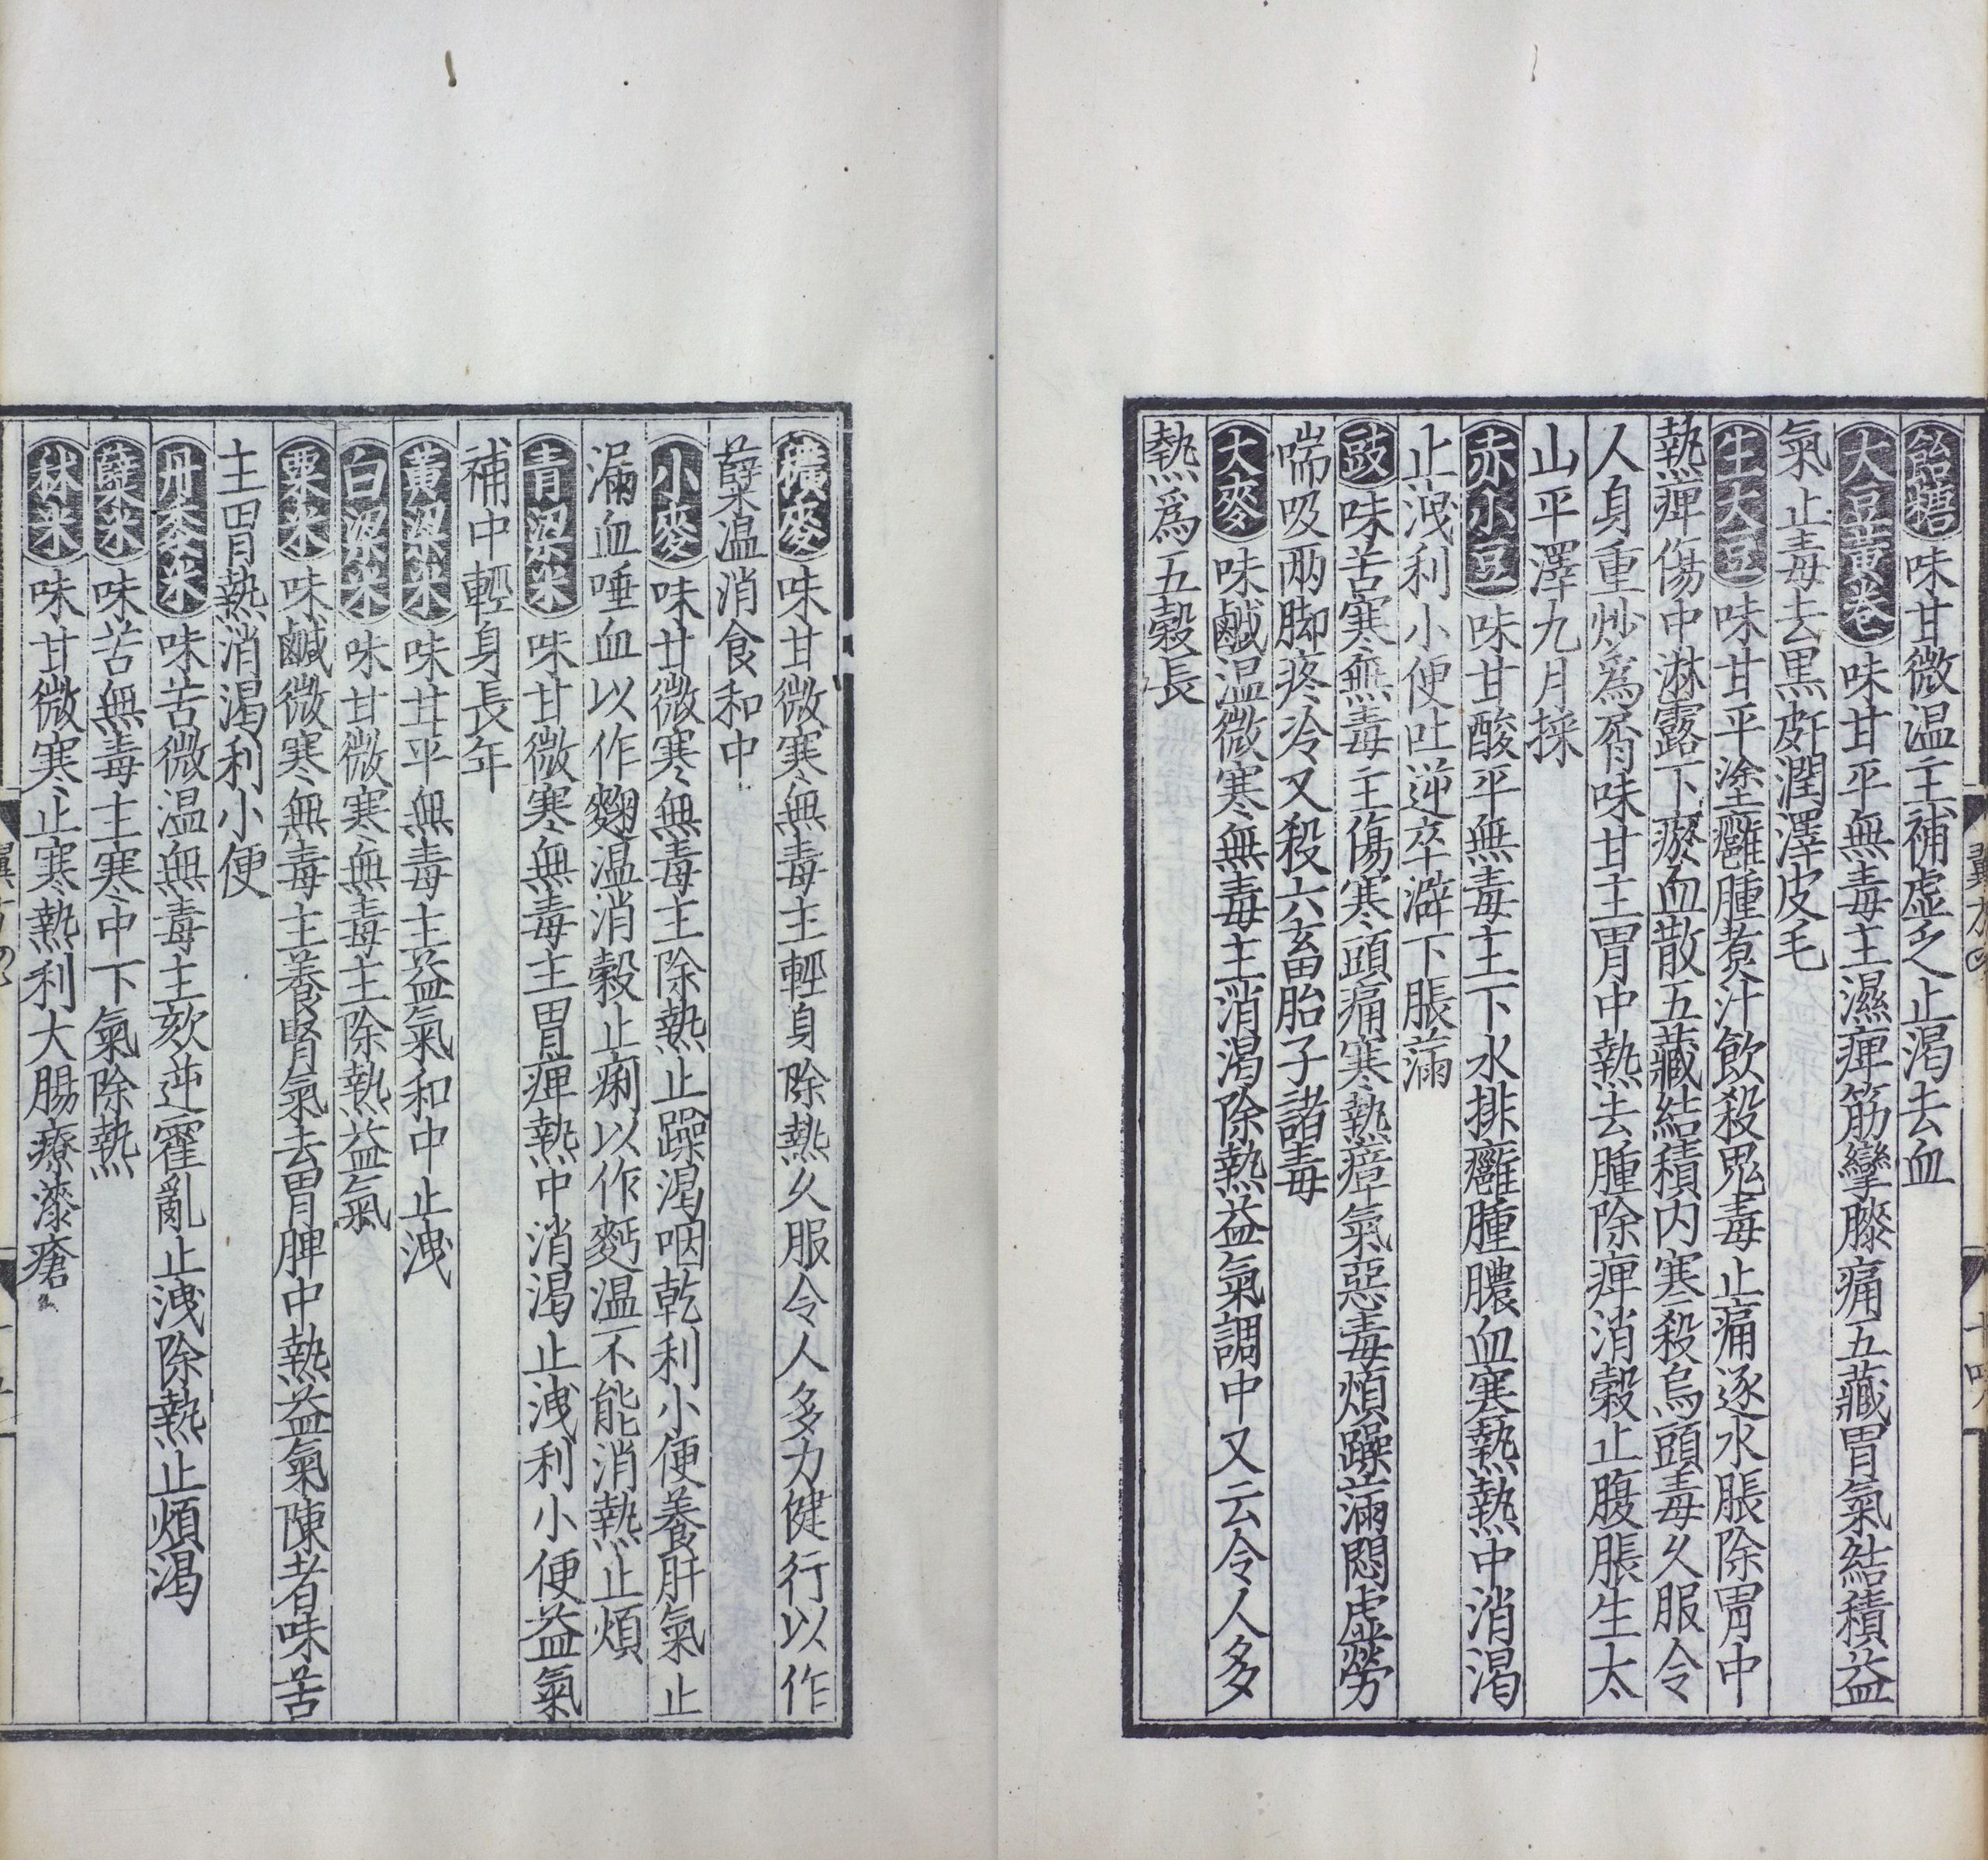 飴糖味甘微温主補虚乏止渴去血
大豆黄卷味甘平無毒主濕痺筋攣膝痛五藏胃氣結積益
氣止毒去黒皯潤澤皮毛
生大豆味甘平塗癰腫煑汁飲殺鬼毒止痛逐水脹除胃中
熱痺傷中淋露下瘀血散五藏結積内寒殺烏頭毒久服令
人身重炒為屑味甘主胃中熱去腫除痺消穀止腹脹生太
山平澤九月採
赤小豆味甘酸平無毒主下水排癰腫膿血寒熱熱中消渴
止洩利小便吐逆卒澼下脹滿
豉味苦寒無毒主傷寒頭痛寒熱瘴氣惡毒煩躁滿悶虚勞
喘吸兩脚疼冷又殺六畜胎子諸毒
大麥味鹹温微寒無毒主消渴除熱益氣調中又云令人多
熱爲五穀長
穬麥味甘微寒無毒主輕身除熱久服令人多力健行以作
蘖温消食和中
小麥味甘微寒無毒主除熱止躁渴咽乾利小便養肝氣止
漏血唾血以作麴温消穀止痢以作麪温不能消熱止煩
青梁米味甘微寒無毒主胃痺熱中消渴止洩利小便益氣
補中輕身長年
黄梁米味甘平無毒主益氣和中止洩
白梁米味甘微寒無毒主除熱益氣
粟米味鹹微寒無毒主養腎氣去胃脾中熱益氣陳者味苦
主胃熱消渴利小便
丹黍米味苦微温無毒主欬逆霍亂止洩除熱止煩渴
蘖米味苦無毒主寒中下氣除熱
秫米味甘微寒止寒熱利大腸療漆瘡